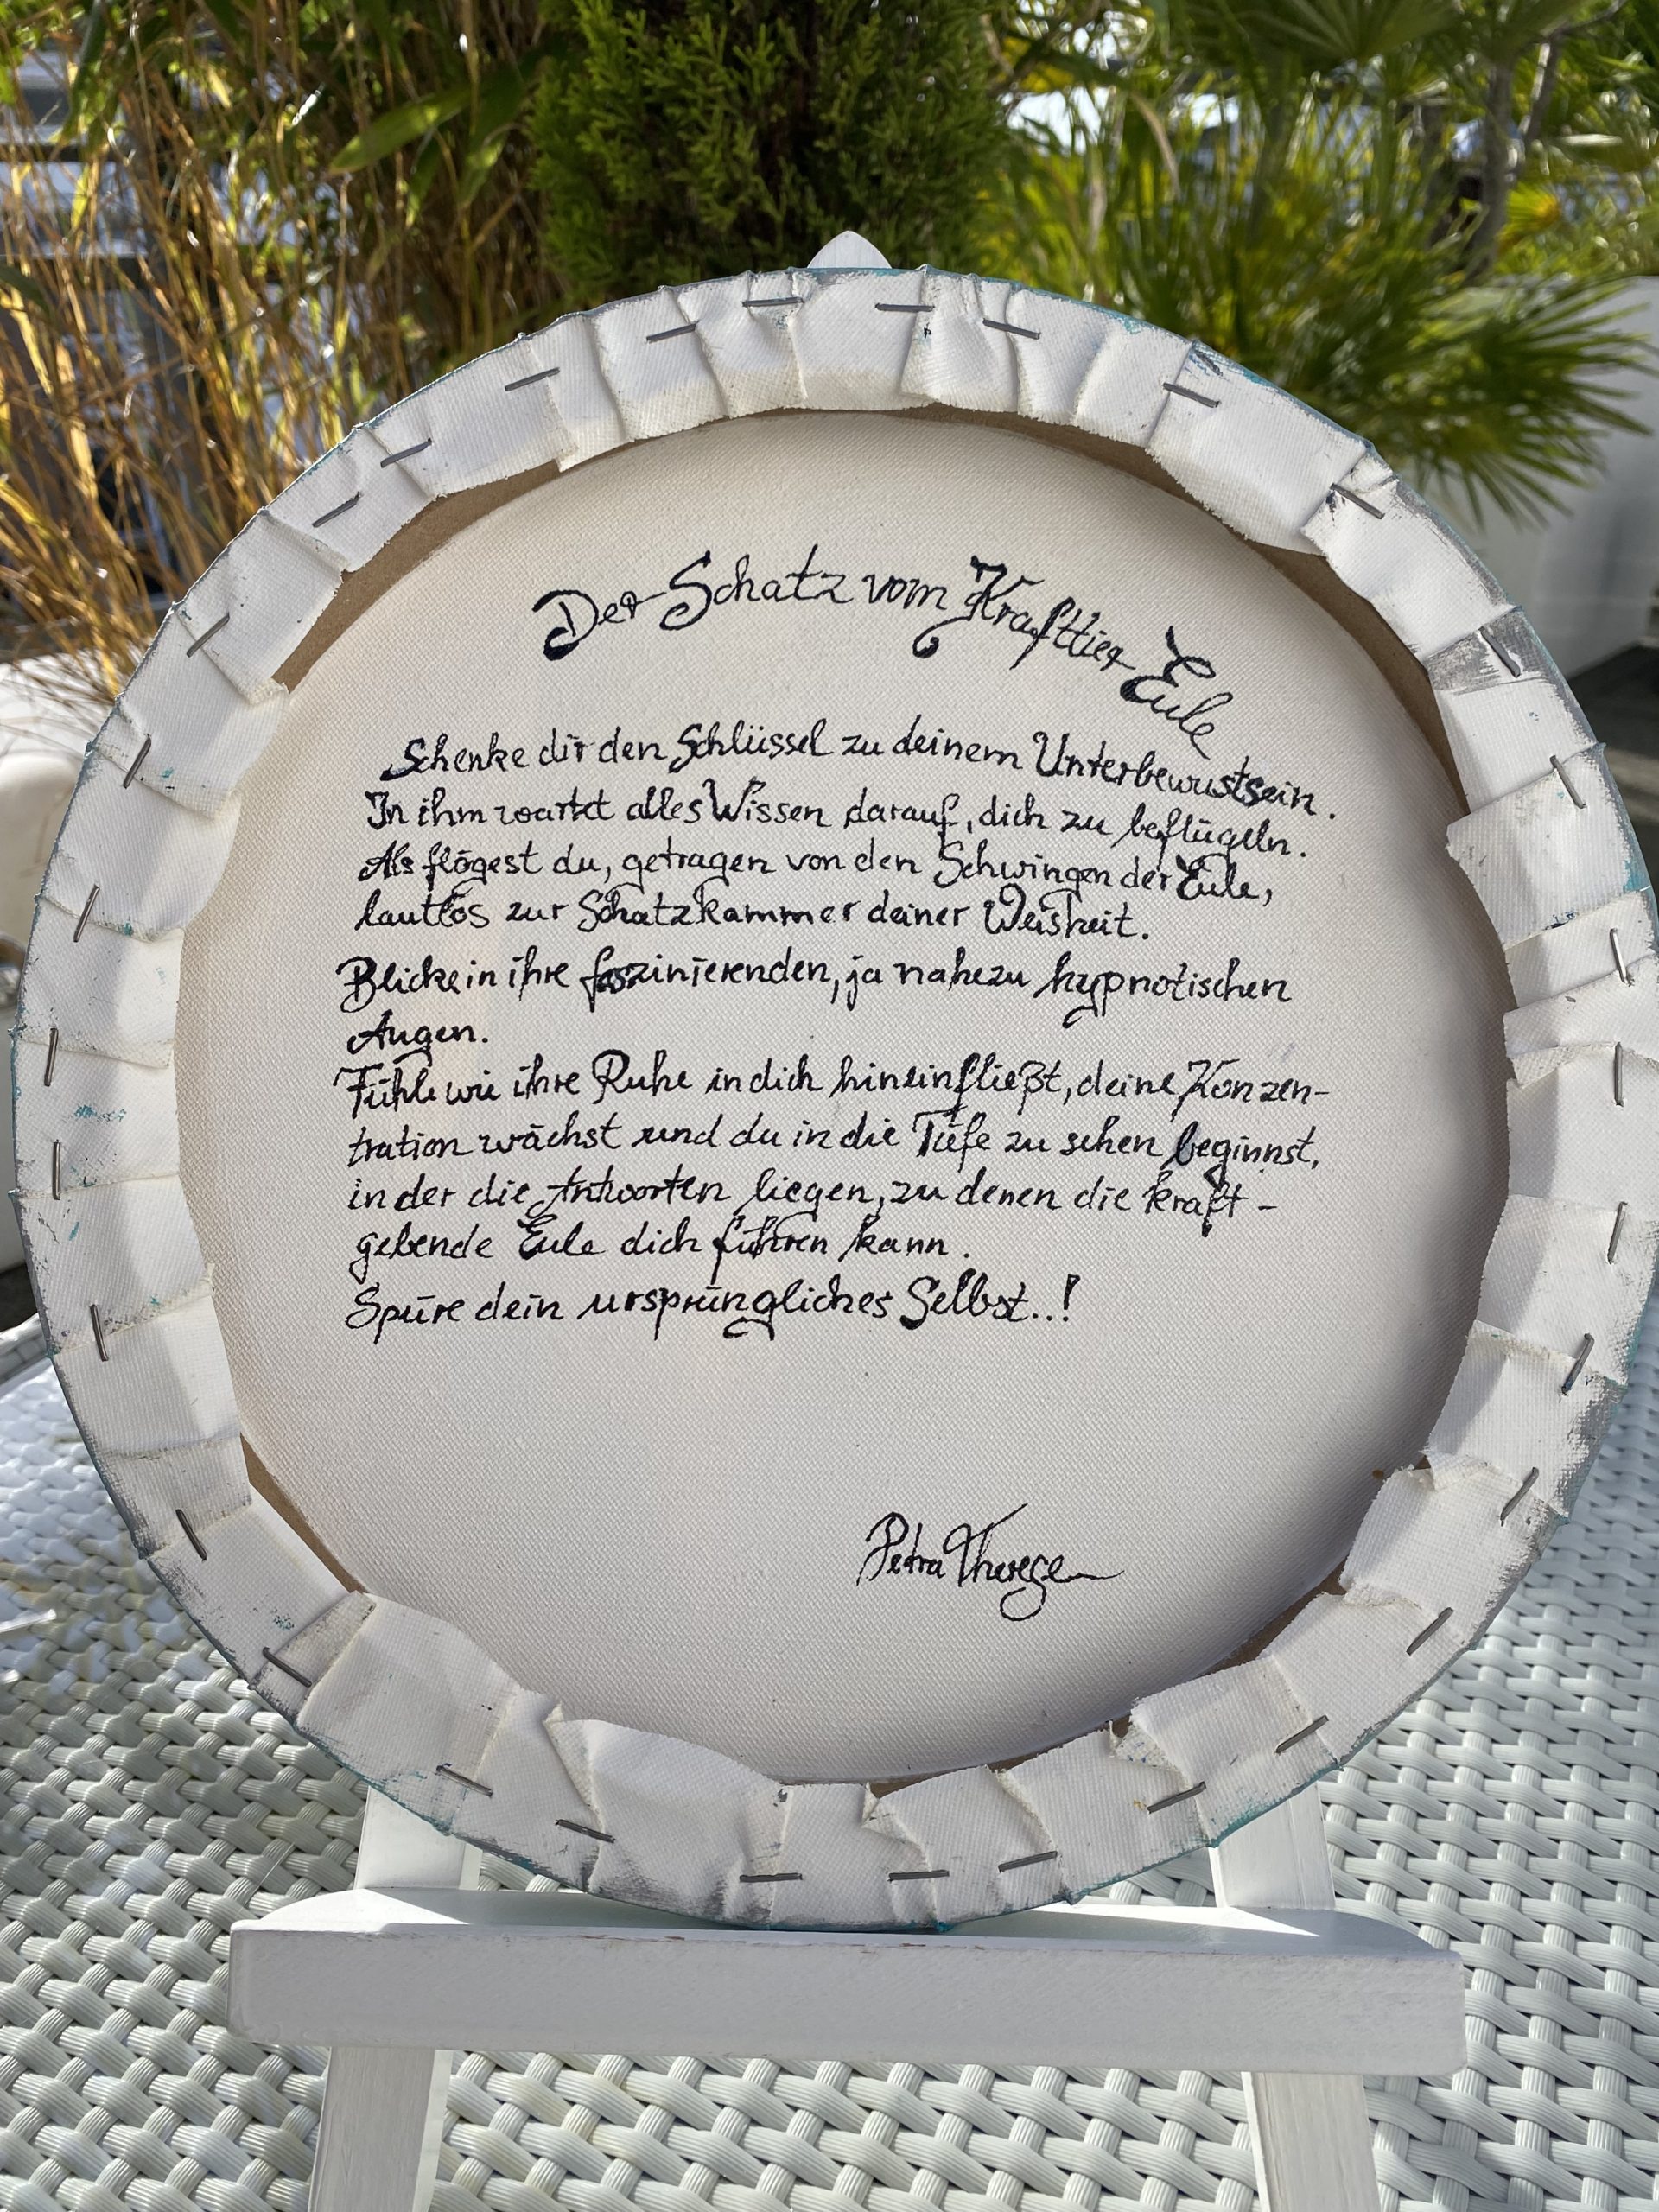 Der Schatz vom Krafttier Eule
Schenke dir den Schlüssel zu deinem Unterbewustsein.
In ihm wartet alles Wissen darauf, dich zu beflügeln.
Als flögest du, getragen von den Schwingen der Eule,
lautlos zur Schatzkammer deiner Weisheit.
Blicke in ihre faszinierenden, ja nahezu hypnotischen
Augen.
Fühle wie ihre Ruhe in dich hineinfließt, deine Konzen-
tration wächst und du in die Tiefe zu sehen beginnst,
in der die Antworten liegen, zu denen die kraft-
gebende Eule dich führen kann.
Spüre dein ursprüngliches Selbst..!
Petra